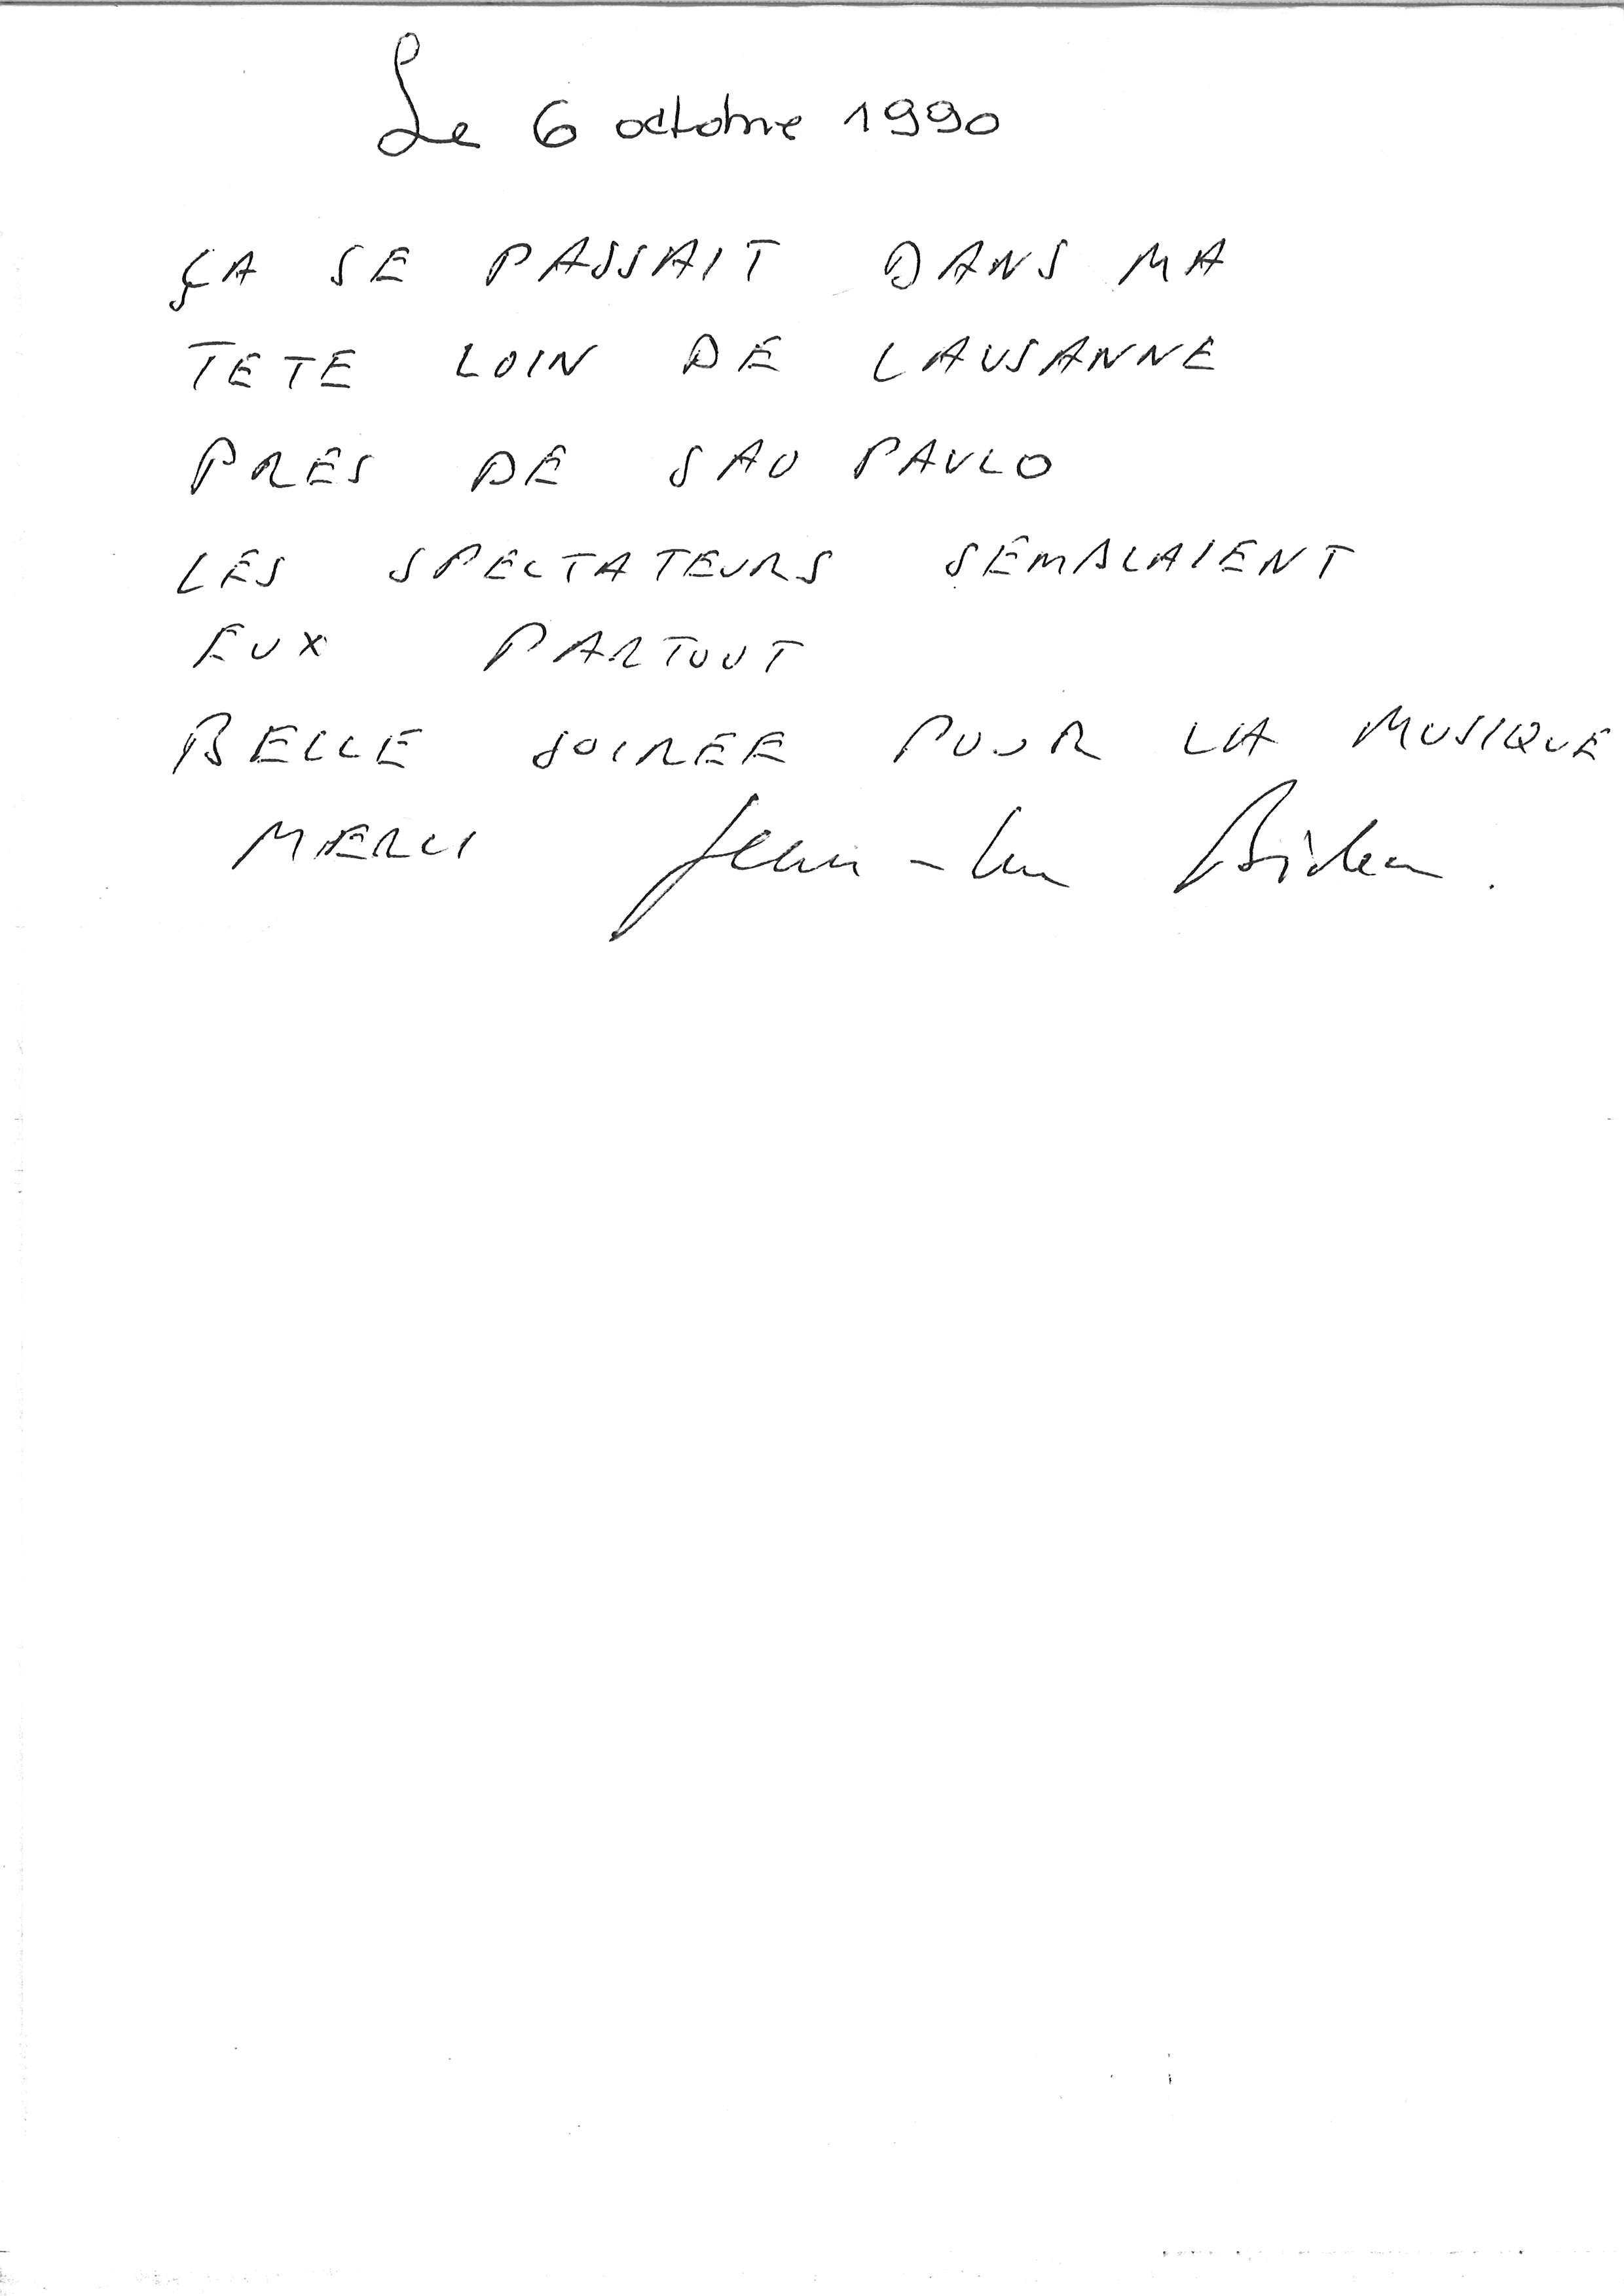 Le 6 octobre 1990
ÇA SE PASSAIT DANS MA
TETE LOIN DE LAUSANNE
PRES DE SAO PAULO
LES SPECTATEURS SEMBLAIENT
EUX PARTOUT
BELLE SOIREE POUR LA MUSIQUE
MERCI Jean-Luc Bideau.